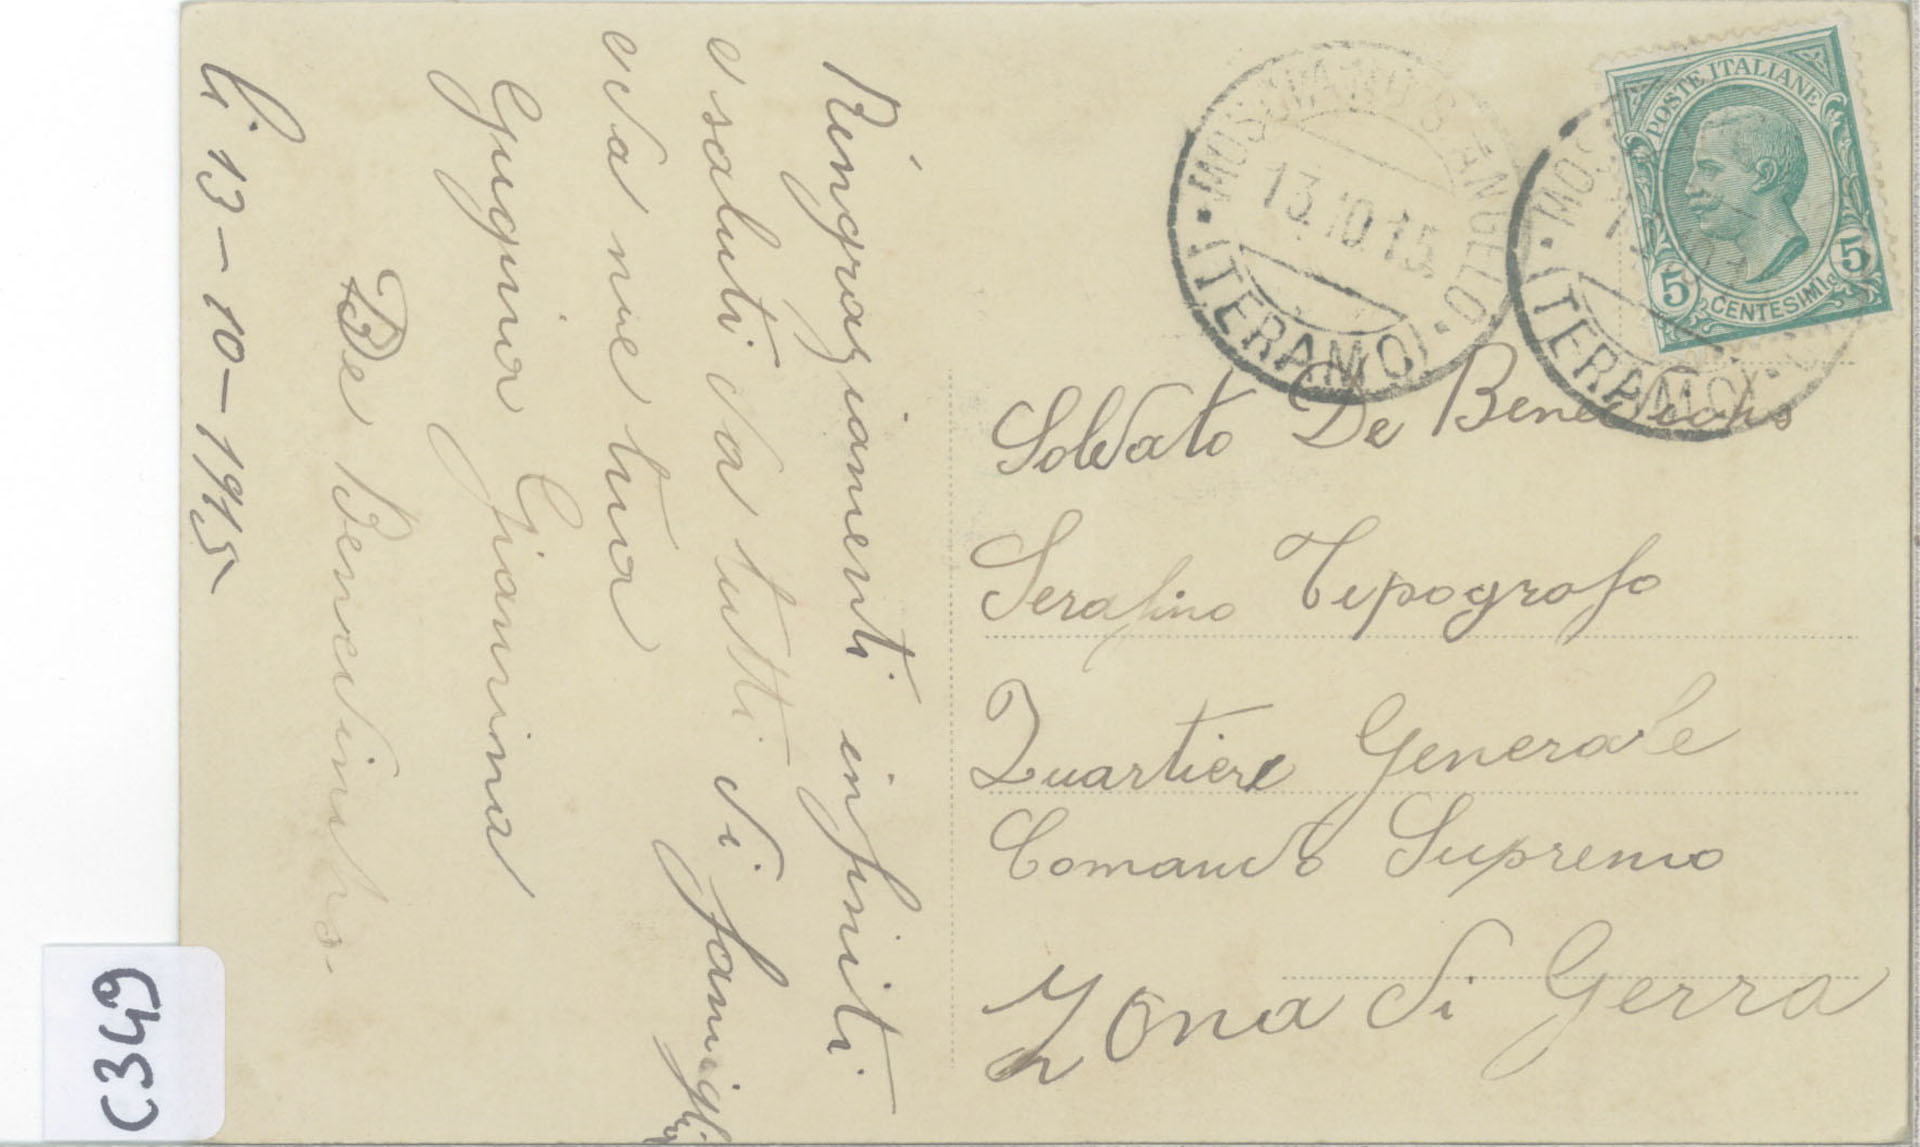 Ringraziamenti infiniti
e saluti da tutti di famiglia
e da me tua
Gugina Giannina
De Benedictis.
li 13-10-1915
POSTE ITALIANE
5 CENTESIMI 5
MOSCIANO S. ANGELO
13.10.15
(TERAMO)
(TERAMO)
Soldato De Benedictis
Serafino Tipografo
Quartiere Generale
Comando Supremo
Zona di Gerra
C349